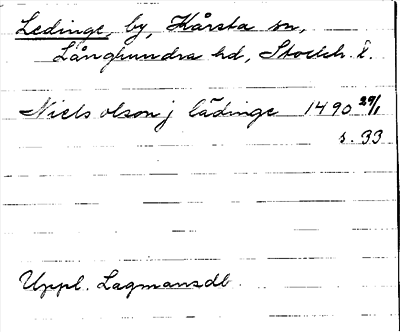 Ledinge, by, Kårsta sn,
Långhundra hd, Stockh. l.
Niels olson j lädinge 1490 29/1
s. 33
Uppl. Lagmansdb.